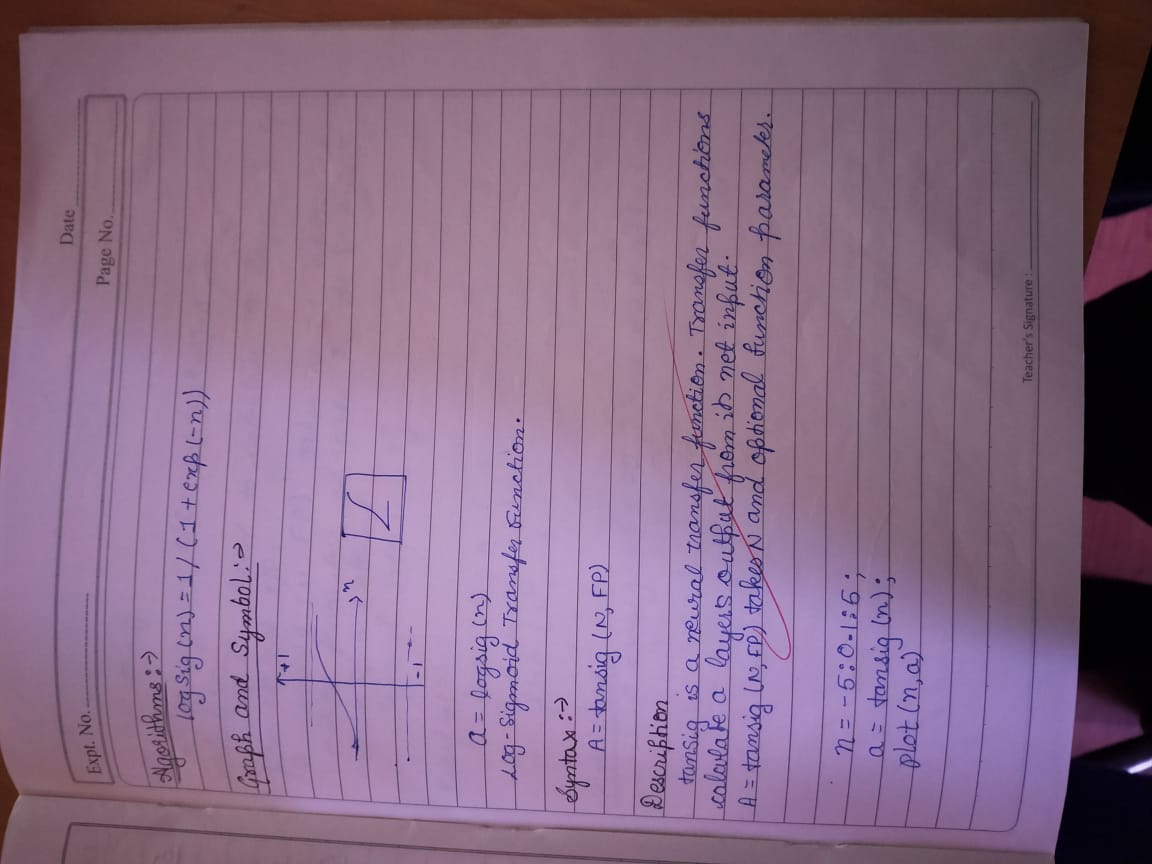 Date
Expt. No.
Page No.
Algorithms:→
logsig (n) = 1 / (1 + exp (-n))
Graph and Symbol:→
+1
n
-1
a = logsig (n)
Log-Sigmoid Transfer Function.
Syntax:→
A = tansig (N, FP)
Description
tansig is a neural transfer function. Transfer functions
calculate a layers output from its net input.
A = tansig (N, FP) takes N and optional function parameter.
n = -5:0.1:5;
a = tansig (n);
plot (n,a)
Teacher's Signature :